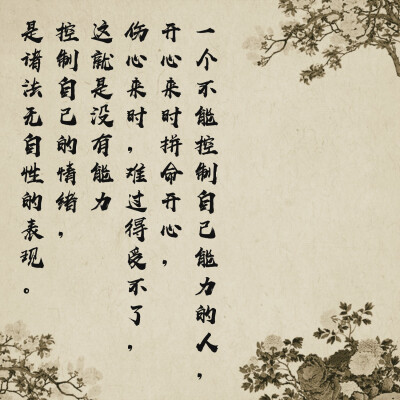 一个不能控制自己能力的人，
开心来时拼命开心，
伤心来时，难过得受不了，
这就是没有能力
控制自己的情绪，
是诸法无自性的表现。